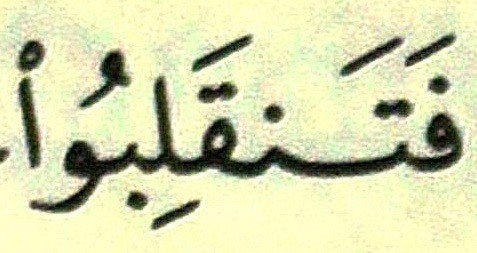 فَتَنقَلِبُوا۟